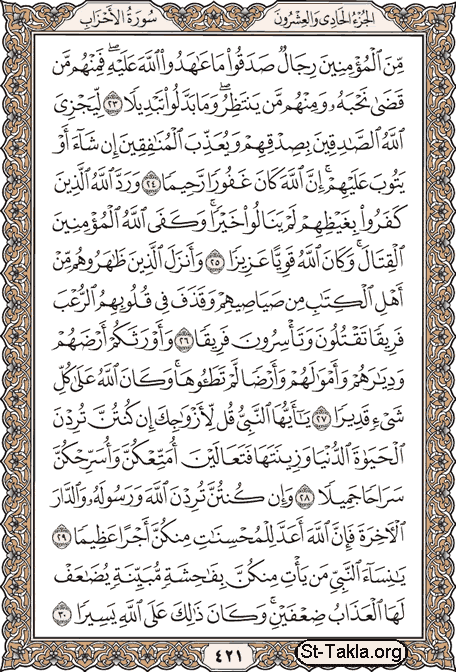 الجزء الحادي والعشرون
سورة الأحزاب
مِّنَ ٱلْمُؤْمِنِينَ رِجَالٌ صَدَقُوا۟ مَا عَٰهَدُوا۟ ٱللَّهَ عَلَيْهِ ۖ فَمِنْهُم مَّن
قَضَىٰ نَحْبَهُۥ وَمِنْهُم مَّن يَنتَظِرُ ۖ وَمَا بَدَّلُوا۟ تَبْدِيلًا ٢٣ لِّيَجْزِىَ
ٱللَّهُ ٱلصَّٰدِقِينَ بِصِدْقِهِمْ وَيُعَذِّبَ ٱلْمُنَٰفِقِينَ إِن شَآءَ أَوْ
يَتُوبَ عَلَيْهِمْ ۚ إِنَّ ٱللَّهَ كَانَ غَفُورًا رَّحِيمًا ٢٤ وَرَدَّ ٱللَّهُ ٱلَّذِينَ
كَفَرُوا۟ بِغَيْظِهِمْ لَمْ يَنَالُوا۟ خَيْرًا ۚ وَكَفَى ٱللَّهُ ٱلْمُؤْمِنِينَ
ٱلْقِتَالَ ۚ وَكَانَ ٱللَّهُ قَوِيًّا عَزِيزًا ٢٥ وَأَنزَلَ ٱلَّذِينَ ظَٰهَرُوهُم مِّنْ
أَهْلِ ٱلْكِتَٰبِ مِن صَيَاصِيهِمْ وَقَذَفَ فِى قُلُوبِهِمُ ٱلرُّعْبَ
فَرِيقًا تَقْتُلُونَ وَتَأْسِرُونَ فَرِيقًا ٢٦ وَأَوْرَثَكُمْ أَرْضَهُمْ
وَدِيَٰرَهُمْ وَأَمْوَٰلَهُمْ وَأَرْضًا لَّمْ تَطَـُٔوهَا ۚ وَكَانَ ٱللَّهُ عَلَىٰ كُلِّ
شَىْءٍ قَدِيرًا ٢٧ يَٰٓأَيُّهَا ٱلنَّبِىُّ قُل لِّأَزْوَٰجِكَ إِن كُنتُنَّ تُرِدْنَ
ٱلْحَيَوٰةَ ٱلدُّنْيَا وَزِينَتَهَا فَتَعَالَيْنَ أُمَتِّعْكُنَّ وَأُسَرِّحْكُنَّ
سَرَاحًا جَمِيلًا ٢٨ وَإِن كُنتُنَّ تُرِدْنَ ٱللَّهَ وَرَسُولَهُۥ وَٱلدَّارَ
ٱلْءَاخِرَةَ فَإِنَّ ٱللَّهَ أَعَدَّ لِلْمُحْسِنَٰتِ مِنكُنَّ أَجْرًا عَظِيمًا ٢٩
يَٰنِسَآءَ ٱلنَّبِىِّ مَن يَأْتِ مِنكُنَّ بِفَٰحِشَةٍ مُّبَيِّنَةٍ يُضَٰعَفْ
لَهَا ٱلْعَذَابُ ضِعْفَيْنِ ۚ وَكَانَ ذَٰلِكَ عَلَى ٱللَّهِ يَسِيرًا ٣٠
٤٢١
St-Takla.org